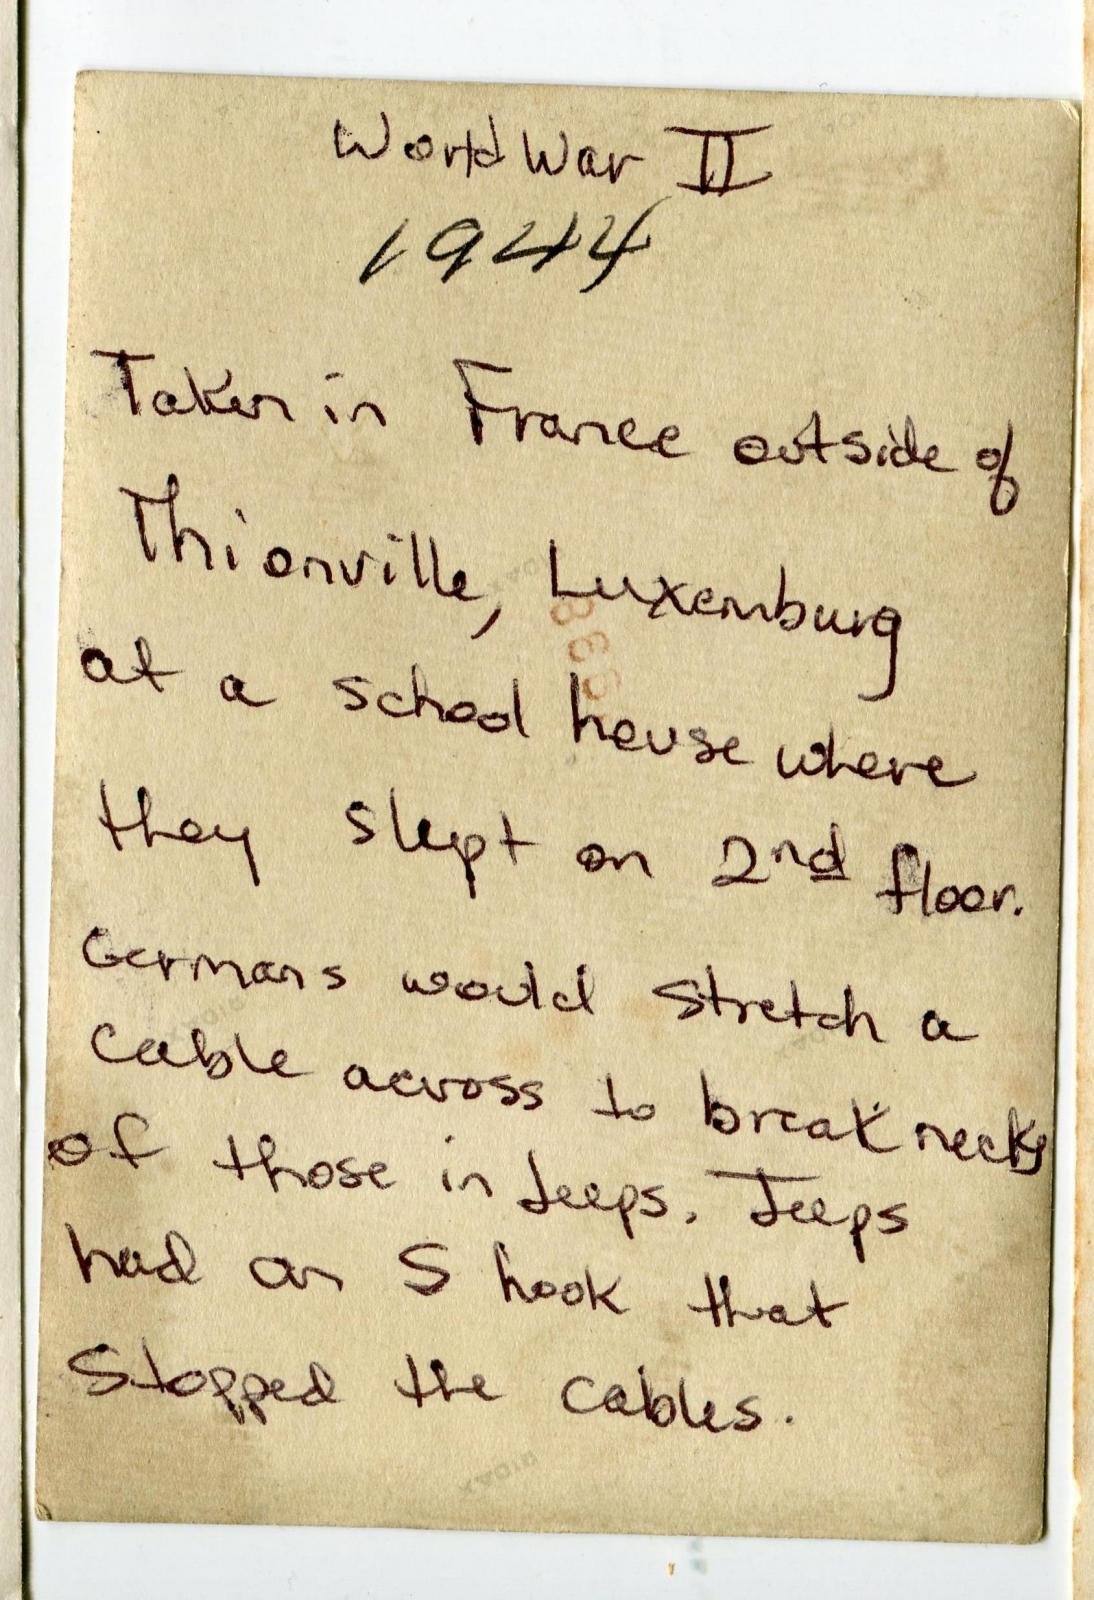 World War II
1944
Taken in France outside of
Thionville, Luxemburg
at a school house where
they slept on 2nd floor.
Germans would stretch a
cable across to break necks
of those in Jeeps. Jeeps
had an S hook that
stopped the cables.